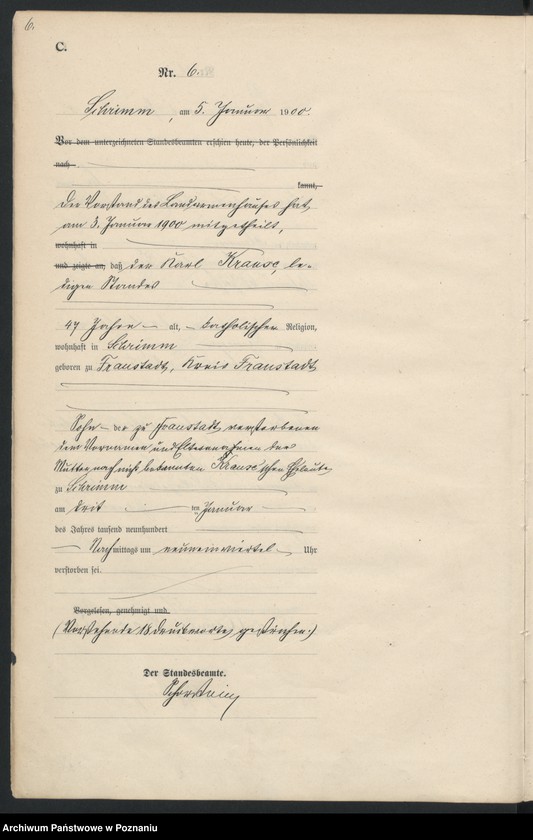 6.
C.
Nr. 6.
Schrimm, am 5. Januar 1900.
Vor dem unterzeichneten Standesbeamten erschien heute, der Persönlichkeit
nach
kannt,
Der Vorstand des Landarmenhauses hat
am 3. Januar 1900 mitgetheilt,
wohnhaft in
und zeigte an, daß der Karl Krause, le-
digen Standes
47 Jahre alt, katholischer Religion,
wohnhaft in Schrimm
geboren zu Fraustadt, Kreis Fraustadt
Sohn der zu Fraustadt verstorbenen
dem Vornamen und Elternnamen der
Mutter nach nicht bekannten Krause'schen Eheleute
zu Schrimm
am drit ten Januar
des Jahres tausend neunhundert
Nachmittags um neuneinviertel Uhr
verstorben sei.
Vorgelesen, genehmigt und
(Vorstehende 18 Druckworte gestrichen.)
Der Standesbeamte.
Archiwum Państwowe w Poznaniu